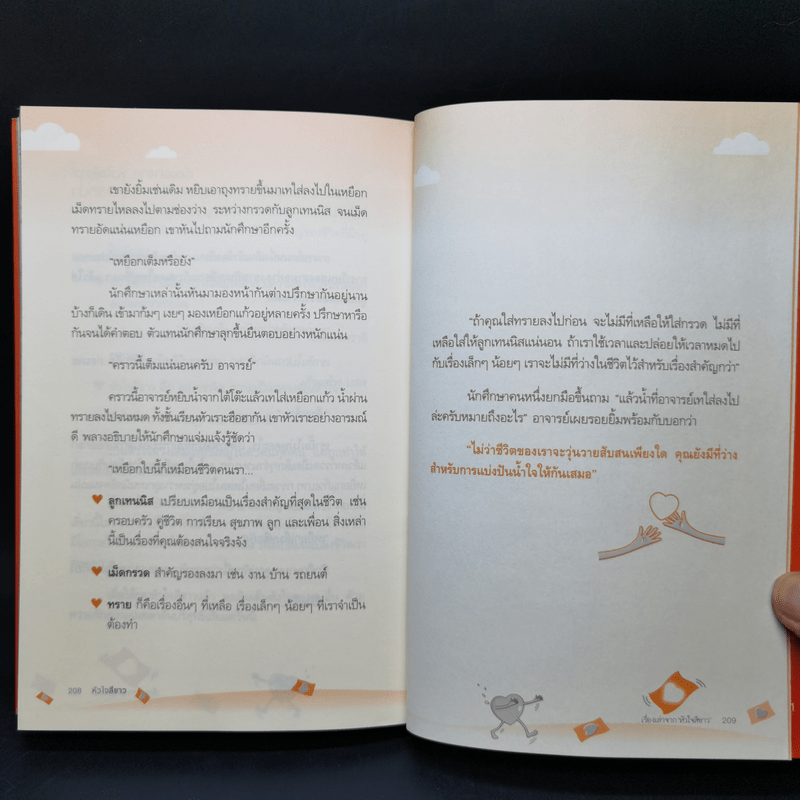 เขายังยิ้มเช่นเดิม หยิบเอาถุงทรายขึ้นมาเทใส่ลงไปในเหยือก
เม็ดทรายไหลลงไปตามช่องว่าง ระหว่างกรวดกับลูกเทนนิส จนเม็ด
ทรายอัดแน่นเหยือก เขาหันไปถามนักศึกษาอีกครั้ง
“เหยือกเต็มหรือยัง”
นักศึกษาเหล่านั้นหันมามองหน้ากันต่างปรึกษากันอยู่นาน
บ้างก็เดิน เข้ามาก้มๆ เงยๆ มองเหยือกแก้วอยู่หลายครั้ง ปรึกษาหารือ
กันจนได้คำตอบ ตัวแทนนักศึกษาลุกขึ้นยืนตอบอย่างหนักแน่น
“คราวนี้เต็มแน่นอนครับ อาจารย์”
คราวนี้อาจารย์หยิบน้ำจากใต้โต๊ะแล้วเทใส่เหยือกแก้ว น้ำผ่าน
ทรายลงไปจนหมด ทั้งชั้นเรียนหัวเราะฮือฮากัน เขาหัวเราะอย่างอารมณ์
ดี พลางอธิบายให้นักศึกษาแจ่มแจ้งรู้ชัดว่า
“เหยือกใบนี้ก็เหมือนชีวิตคนเรา...
ลูกเทนนิส เปรียบเหมือนเป็นเรื่องสำคัญที่สุดในชีวิต เช่น
ครอบครัว คู่ชีวิต การเรียน สุขภาพ ลูก และเพื่อน สิ่งเหล่า
นี้เป็นเรื่องที่คุณต้องสนใจจริงจัง
เม็ดกรวด สำคัญรองลงมา เช่น งาน บ้าน รถยนต์
ทราย ก็คือเรื่องอื่นๆ ที่เหลือ เรื่องเล็กๆ น้อยๆ ที่เราจำเป็น
ต้องทำ
208 หัวใจสีขาว
“ถ้าคุณใส่ทรายลงไปก่อน จะไม่มีที่เหลือให้ใส่กรวด ไม่มีที่
เหลือใส่ให้ลูกเทนนิสแน่นอน ถ้าเราใช้เวลาและปล่อยให้เวลาหมดไป
กับเรื่องเล็กๆ น้อยๆ เราจะไม่มีที่ว่างในชีวิตไว้สำหรับเรื่องสำคัญกว่า”
นักศึกษาคนหนึ่งยกมือขึ้นถาม “แล้วน้ำที่อาจารย์เทใส่ลงไป
ล่ะครับหมายถึงอะไร” อาจารย์เผยรอยยิ้มพร้อมกับบอกว่า
“ไม่ว่าชีวิตของเราจะวุ่นวายสับสนเพียงใด คุณยังมีที่ว่าง
สำหรับการแบ่งปันน้ำใจให้กันเสมอ”
เรื่องเล่าจาก‘หัวใจสีขาว’ 209